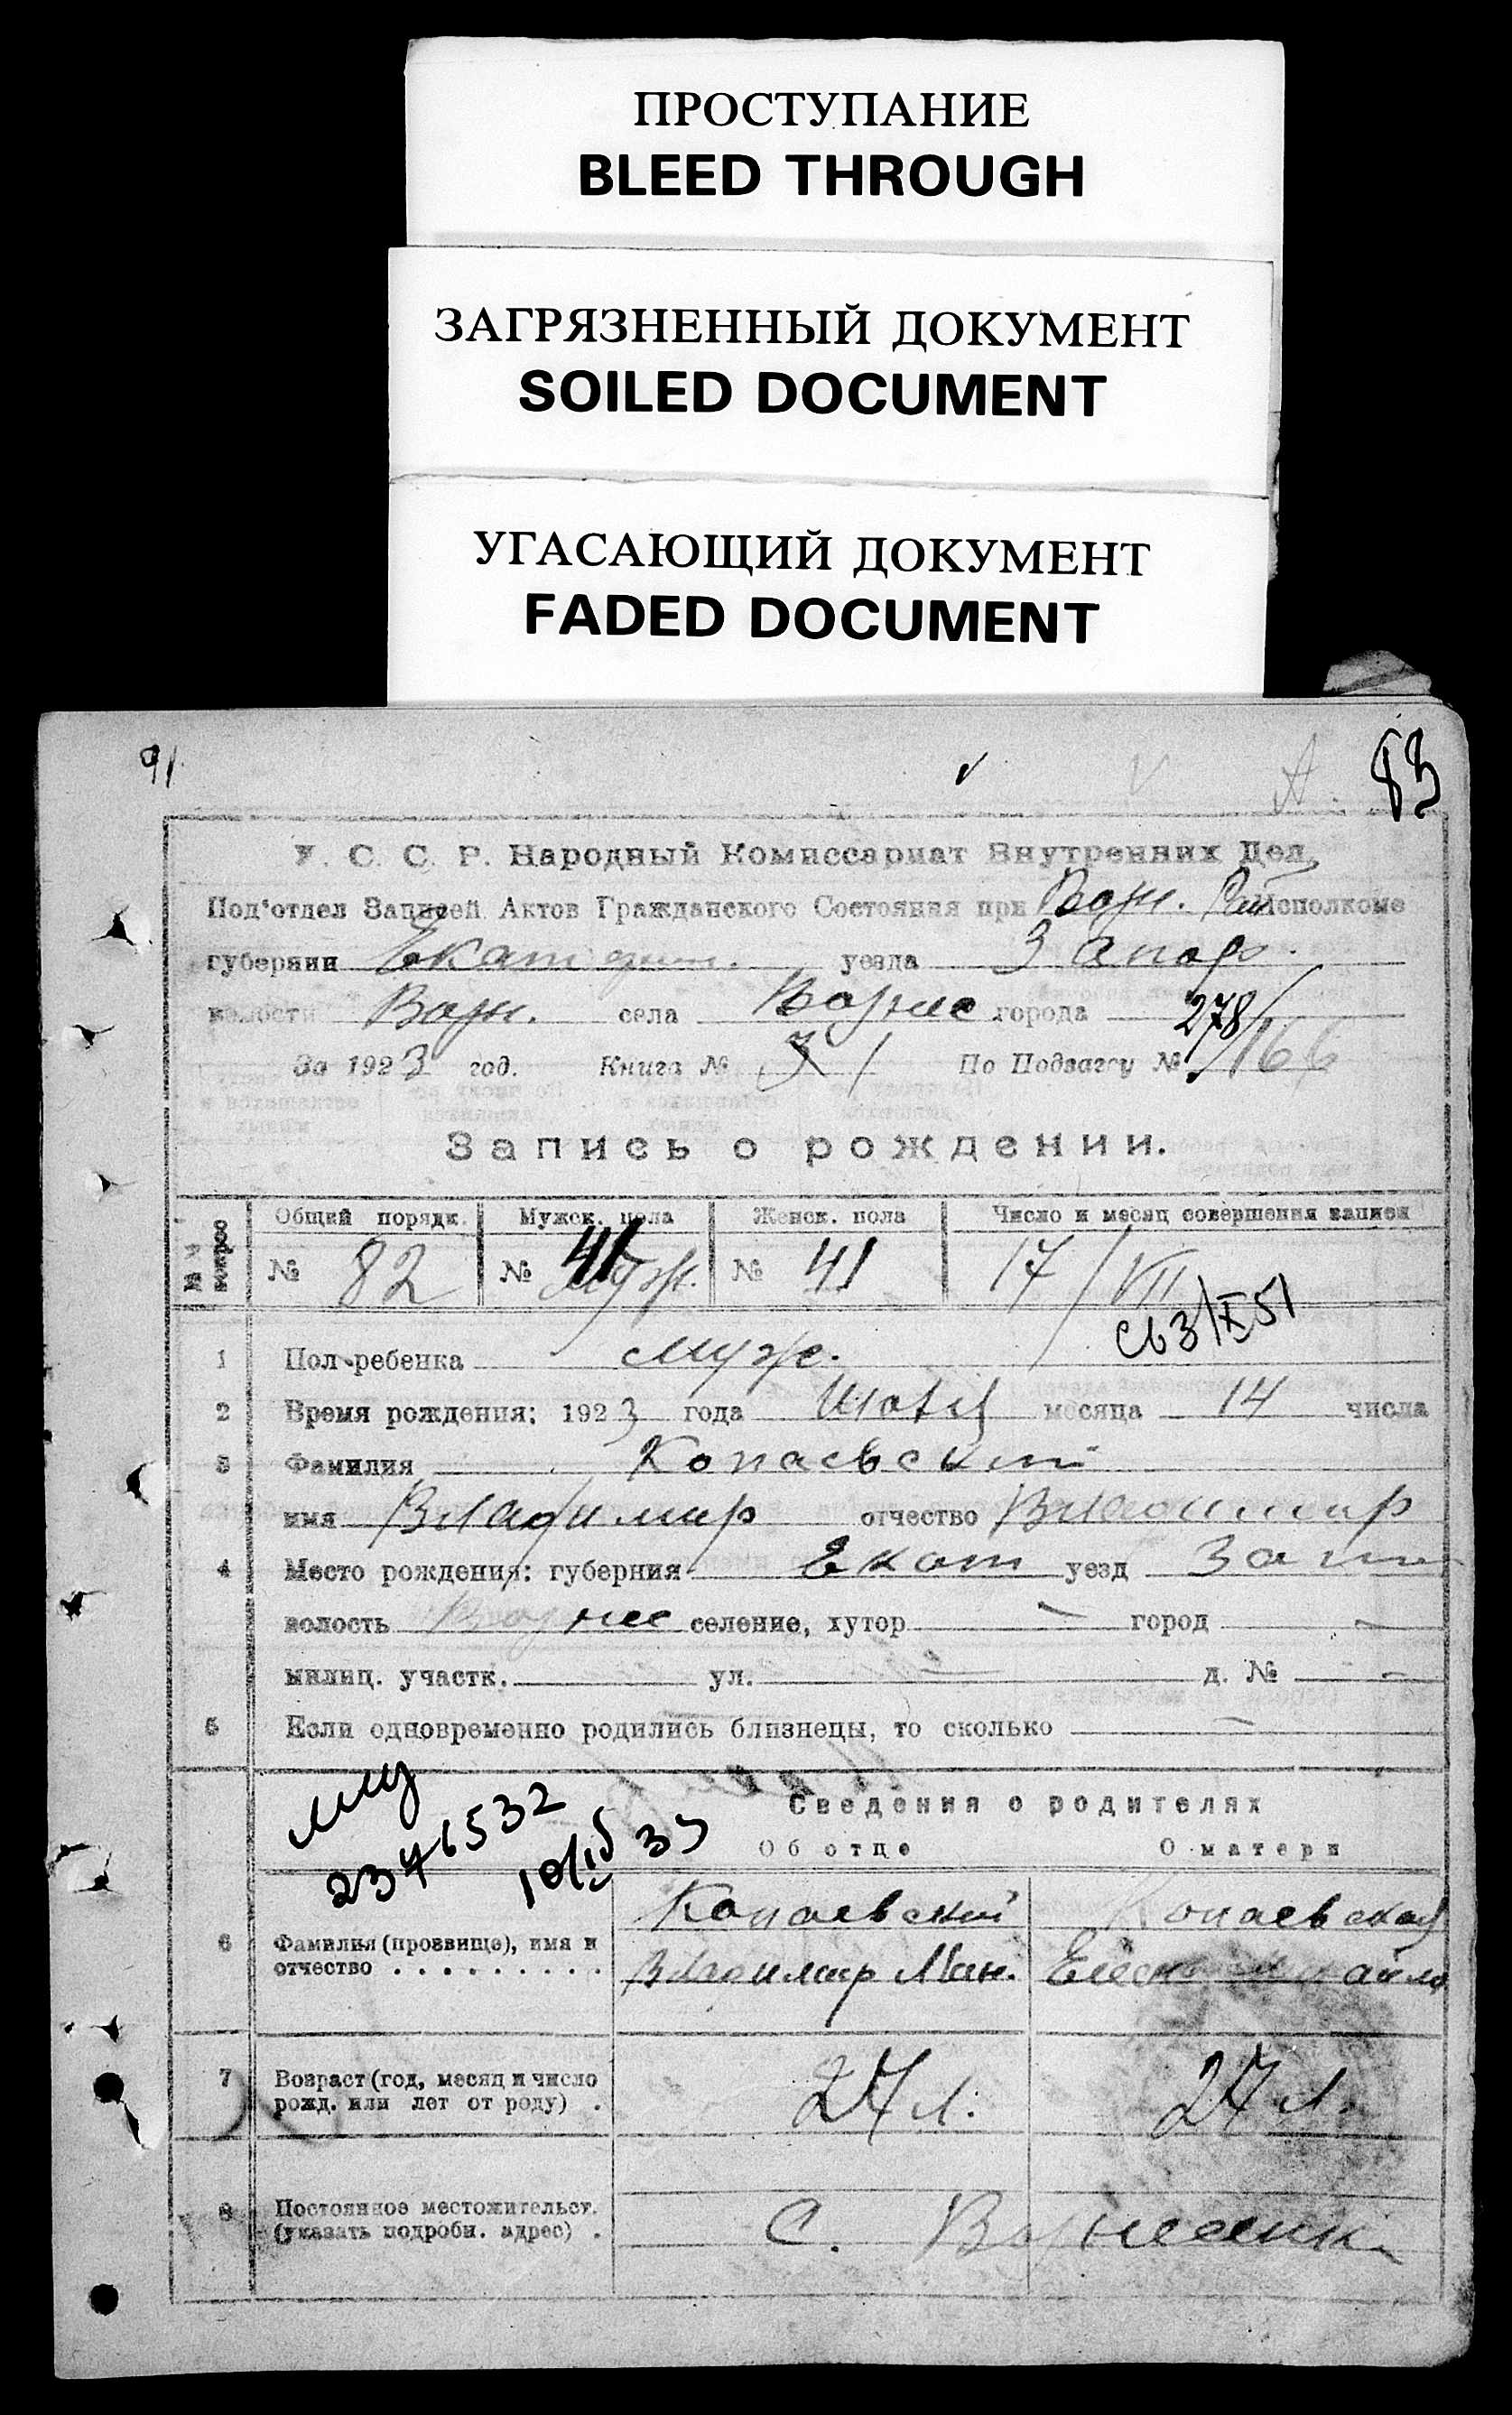 ПРОСТУПАНИЕ
BLEED THROUGH
ЗАГРЯЗНЕННЫЙ ДОКУМЕНТ
SOILED DOCUMENT
УГАСАЮЩИЙ ДОКУМЕНТ
FADED DOCUMENT
91
83
У. С. С. Р. Народный Комиссариат Внутренних Дел,
Под'отдел Записей Актов Гражданского Состояния при Возн. Рай Исполкоме
губернии уезда Запор.
волости Возн. села Вознес города
За 1923 год. Книга № 1 По Подзагсу № 278/166
Запись о рождении.
Общий порядк. Мужск. пола Женск. пола Число и месяц совершения записи
№ 82 № 41 № 41 17/VII
3/X 51
1 Пол ребенка муж.
2 Время рождения: 1923 года месяца 14 числа
3 Фамилия Копаевский
имя Владимир отчество Владимир
4 Место рождения: губерния Екат уезд Запо
волость Вознес селение, хутор — город —
милиц. участк. ул. — д. № —
5 Если одновременно родились близнецы, то сколько —
Сведения о родителях
2346532
Об отце О матери
6 Фамилия (прозвище), имя и отчество . . . . . . . . . Копаевский Копаевская
Владимир Ман.
7 Возраст (год, месяц и число рожд. или лет от роду) . 27 л. 27 л.
8 Постоянное местожительст. (указать подробн. адрес) . С. Вознесенка